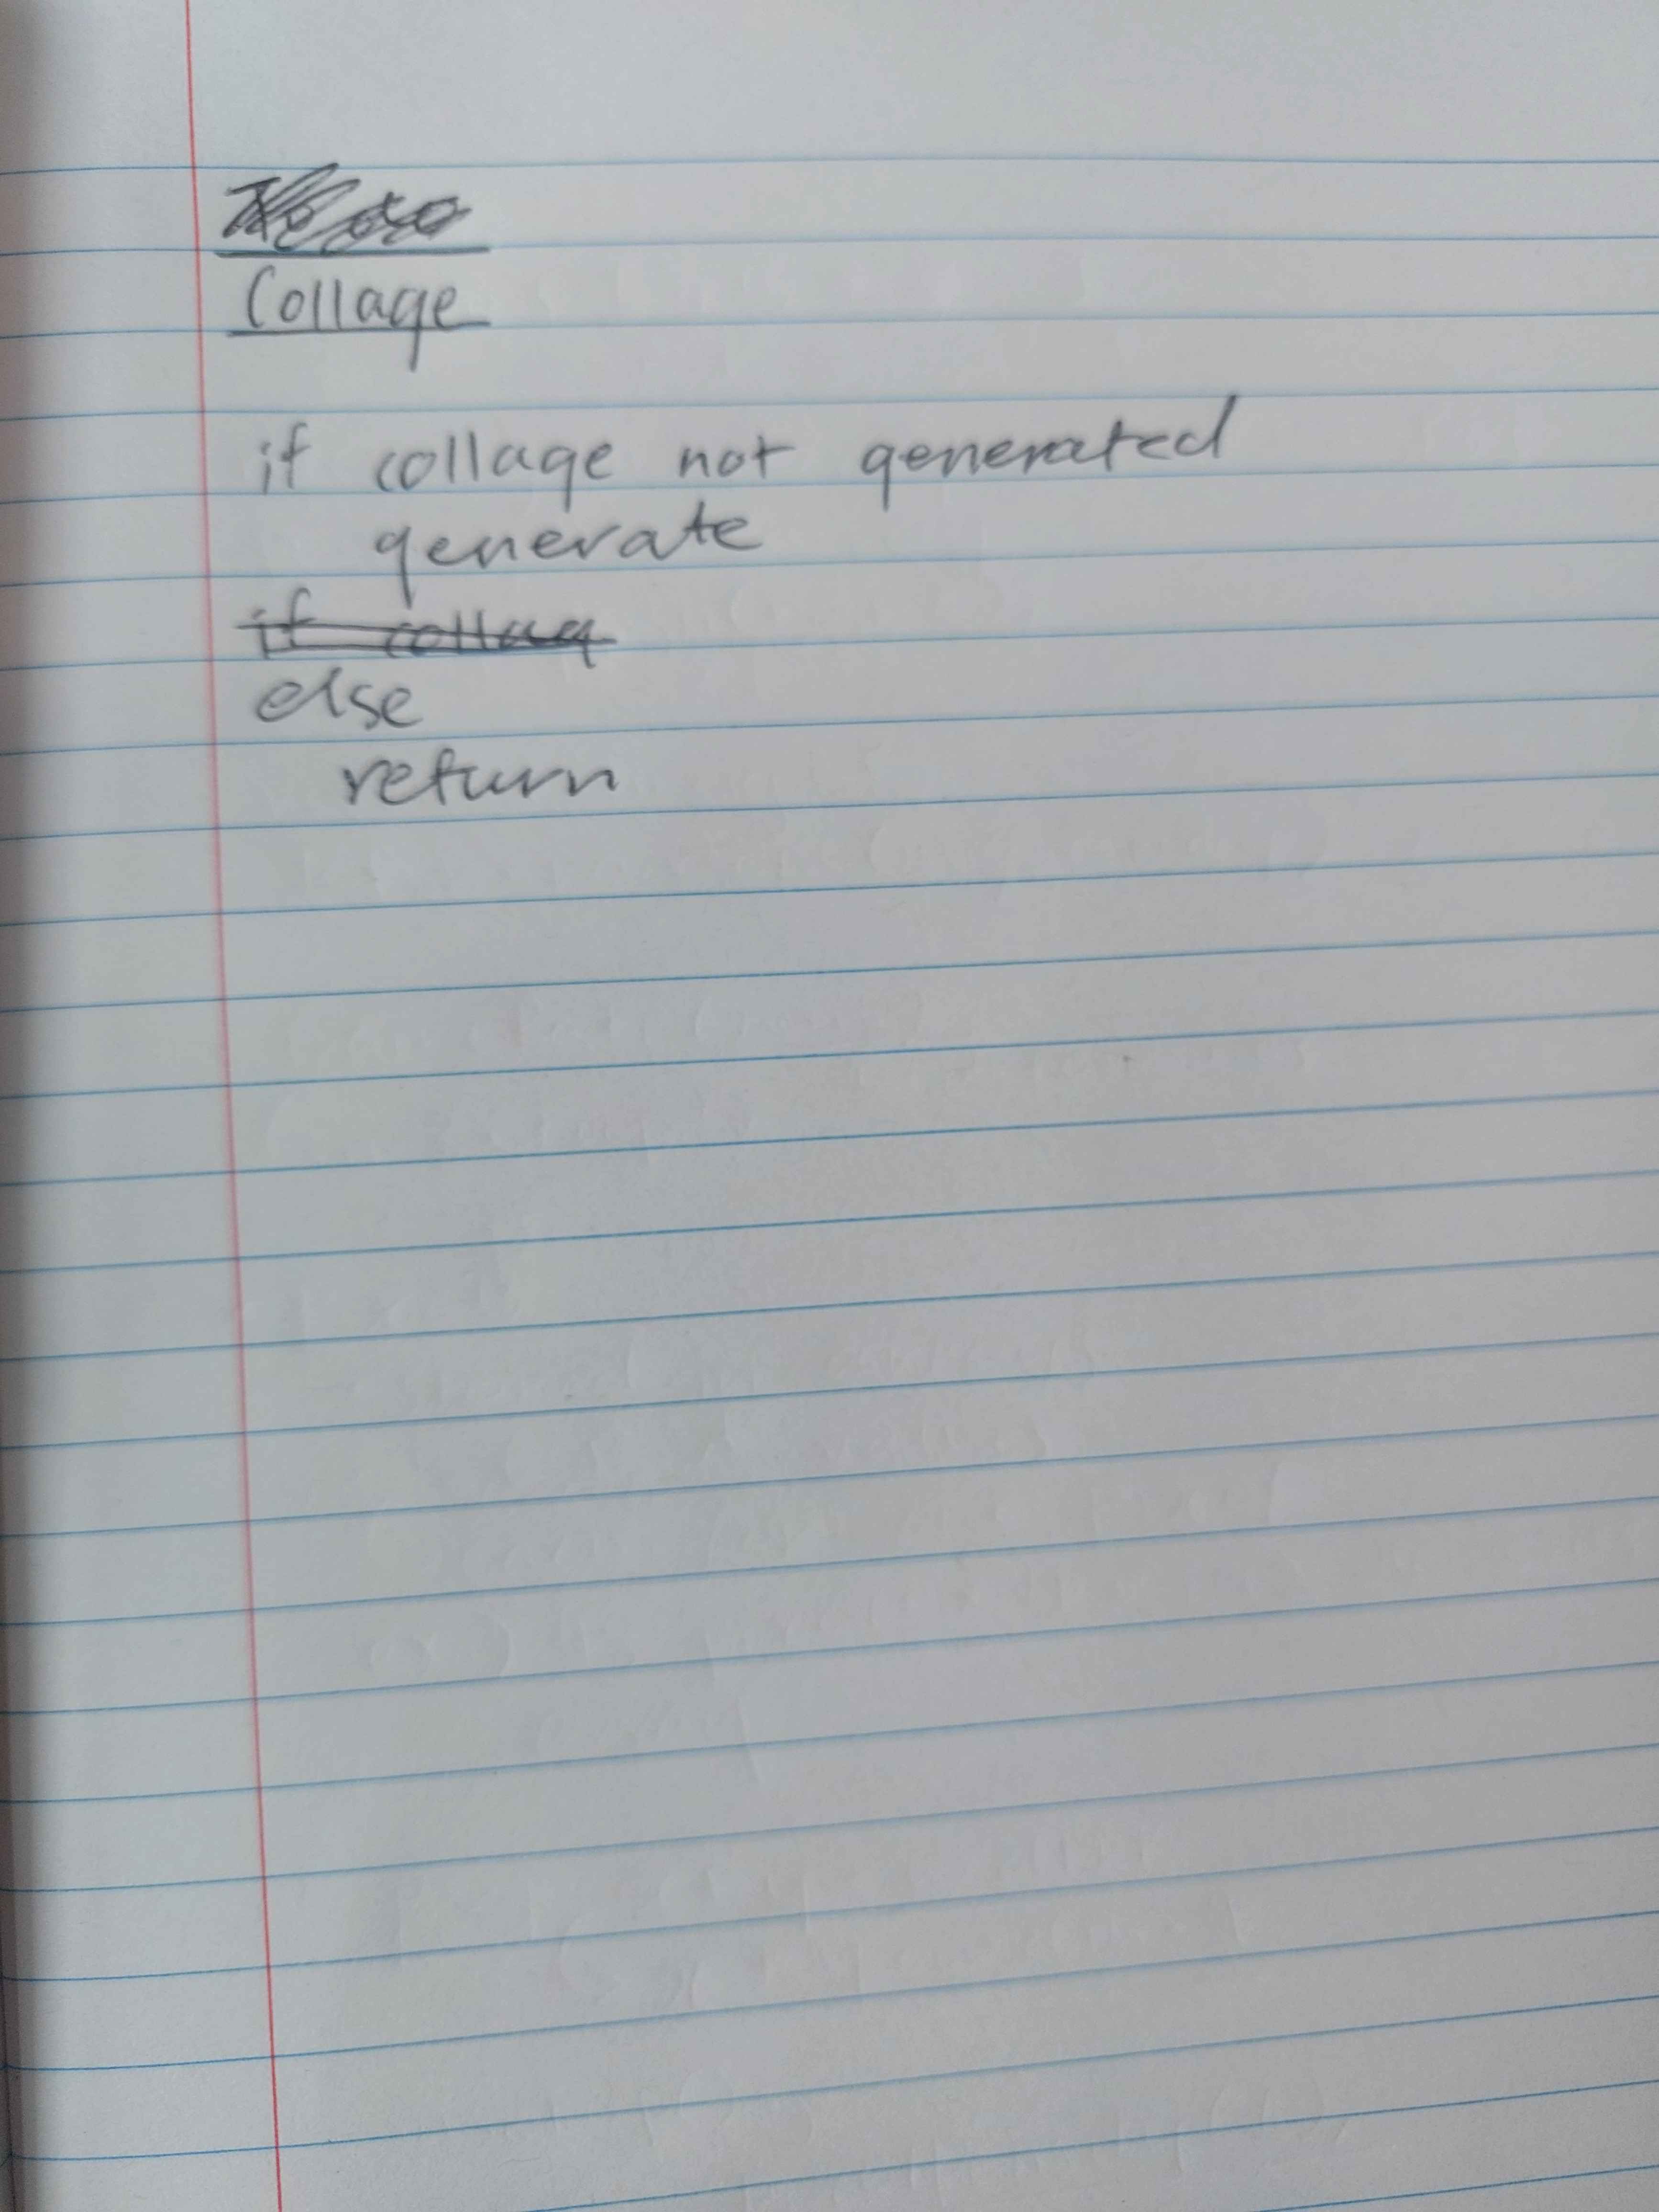 Collage
if collage not generated
generate
if collag
else
return